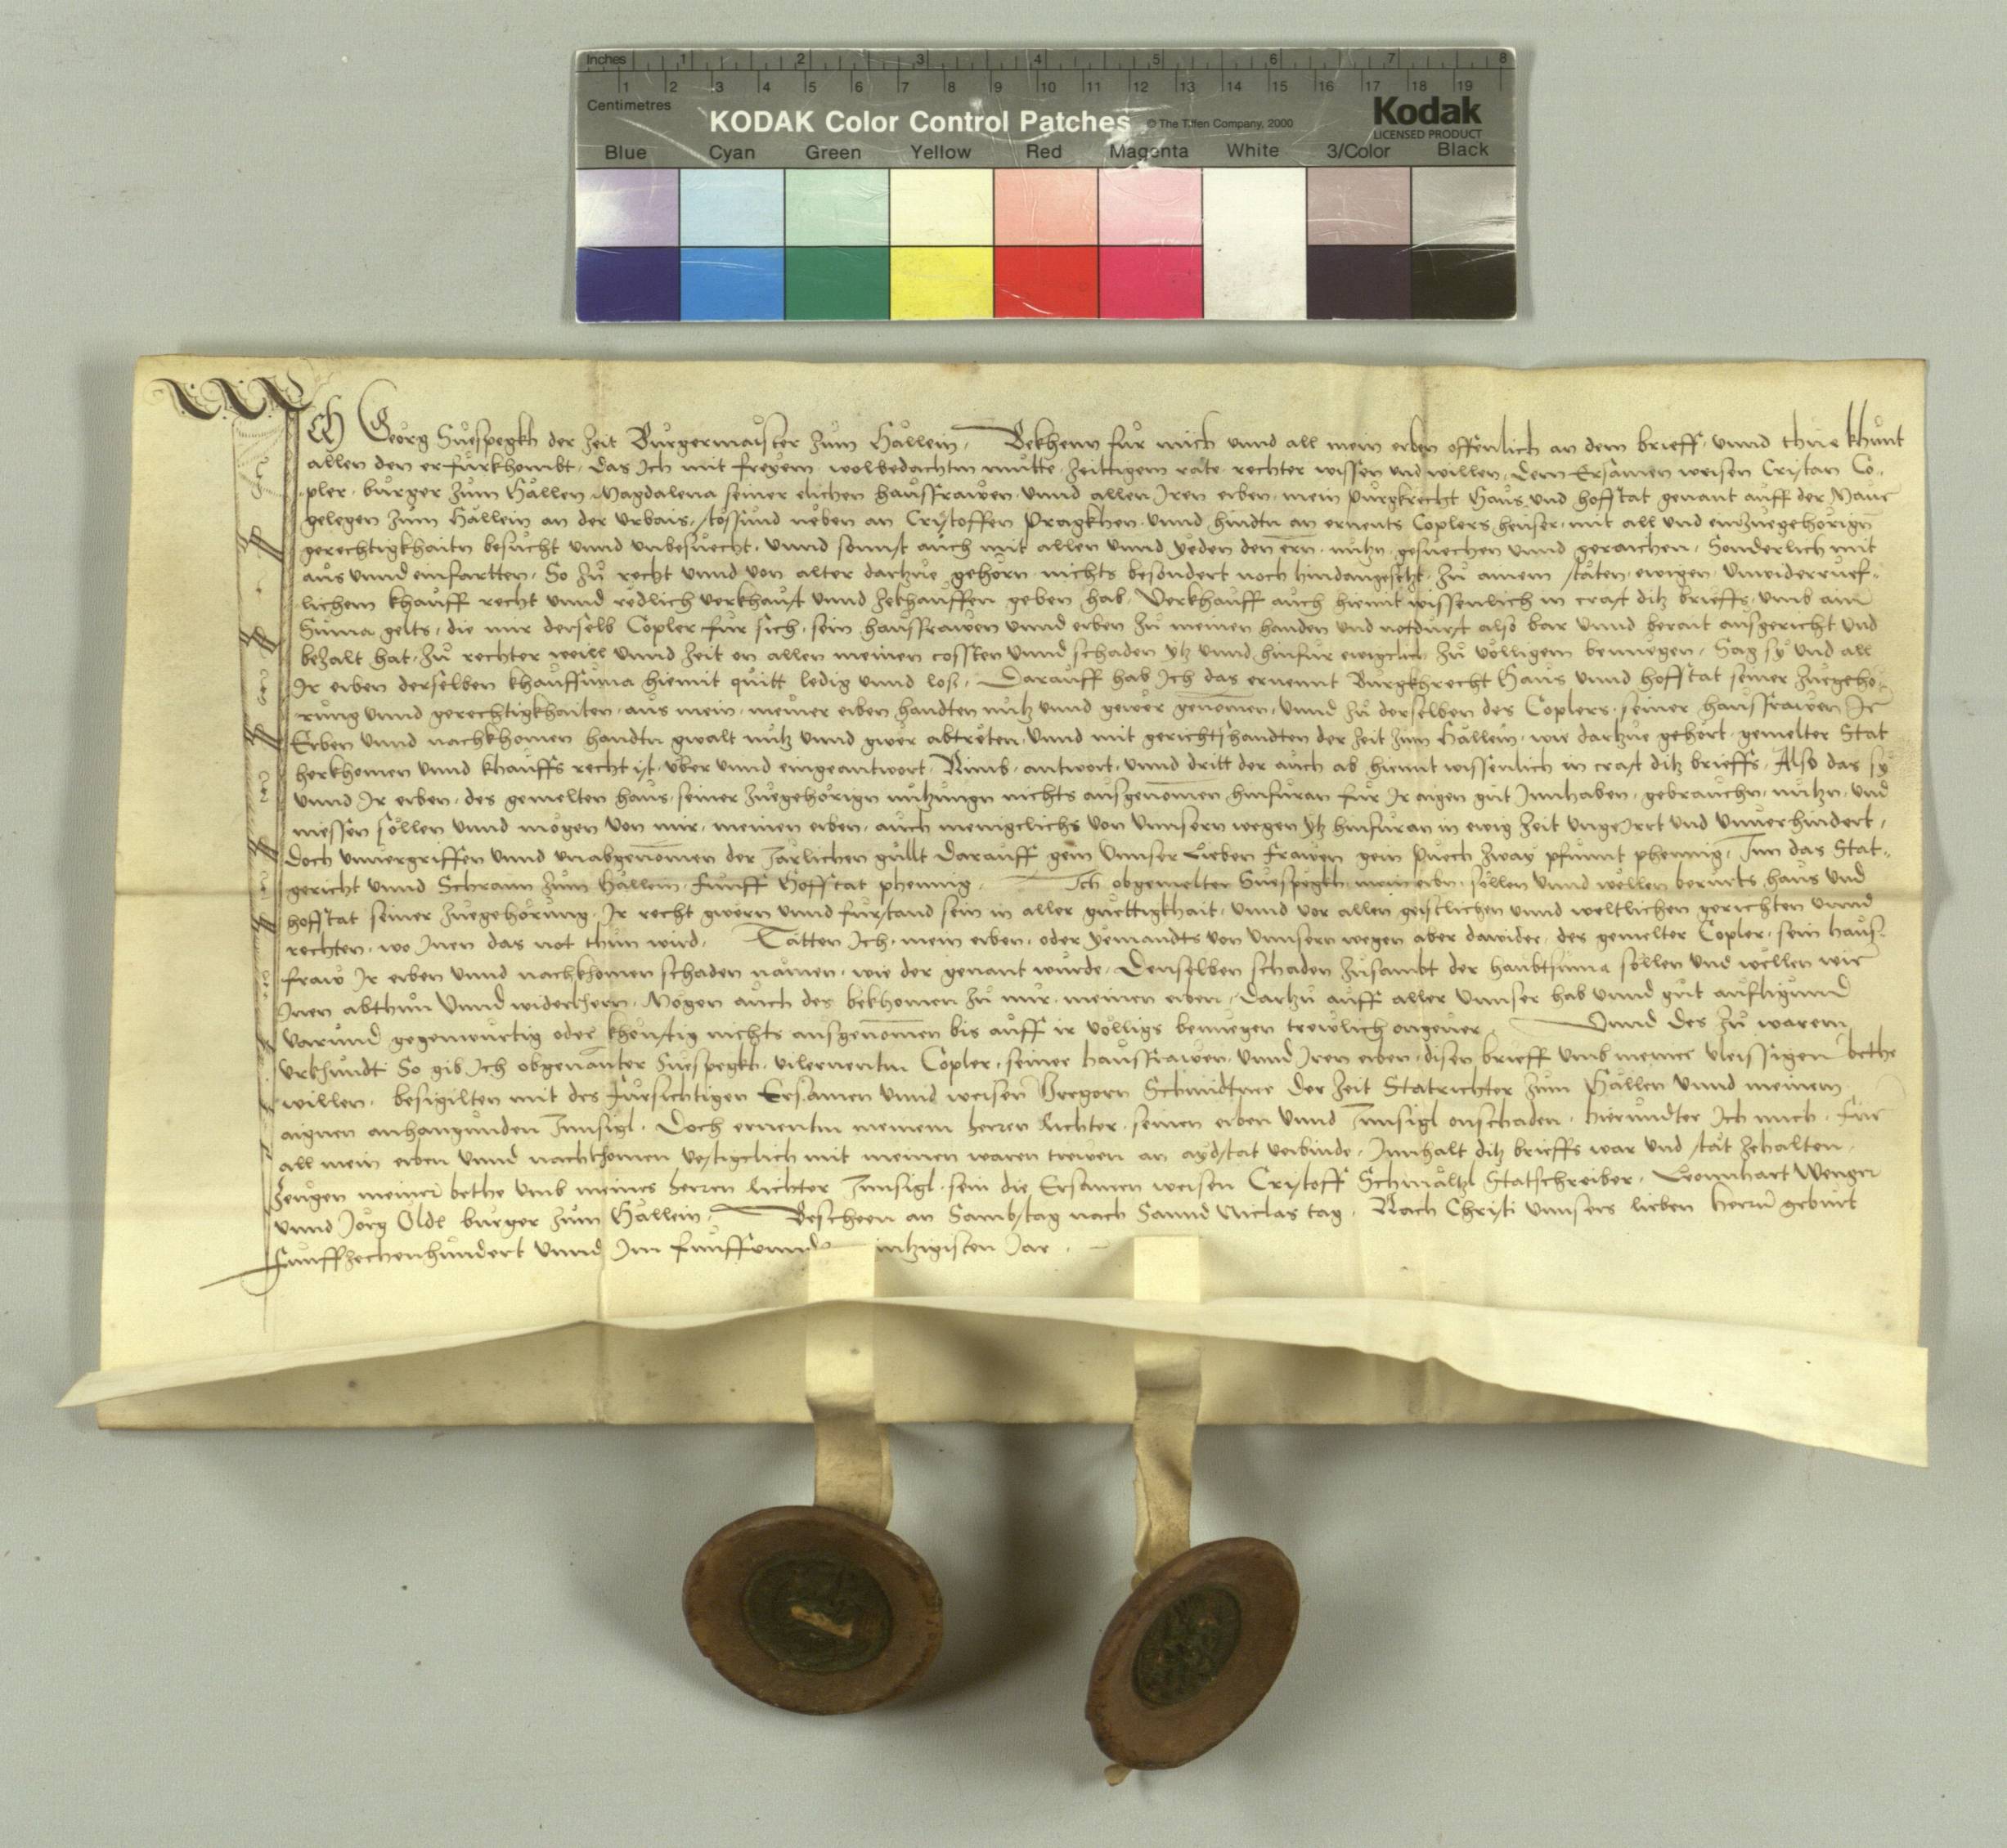 Inches 1 2 3 4 5 6 7 8
1 2 3 4 5 6 7 8 9 10 11 12 13 14 15 16 17 18 19
Centimetres
KODAK Color Control Patches © The Tiffen Company, 2000 Kodak
LICENSED PRODUCT
Blue Cyan Green Yellow Red Magenta White 3/Color Black
Ich Georg Suespegkh der Zeit Burgermaister zum Hällein, Bekhenn für mich unnd all mein erben offenlich an dem brieff, unnd thue khunt
allen den er fürkhombt, das Ich mit freyem wolbedachtm mutte, zeittigem rate, rechter wissen und willen, dem Ersamen weisen Cristan Co-
pler, burger zum Hällen, Magdalena seiner elichen hausfrawen, unnd allen Iren erben, mein Purgkrecht Haus und hofstat genant auff der Maur
gelegen zum Hällein an der Urbais, stossund neben an Cristoffen Pragkhen, unnd hindtn an ernents Coplers heuser, mit all und einzuegehörign
gerechtigkhaitn besucht unnd unbesuecht, unnd sonnst auch mit allen unnd yeden den ern, nutzn, gesuechen unnd geraichen, Sonderlich mit
aus unnd einfartten, So zu recht unnd von alter dartzue gehörn, nichts besondert noch hindangesetzt, zu ainem stäten, ewigen, unwiderruef-
lichem khauff recht unnd redlich verkhaufft unnd zekhauffen geben hab, Verkhauff auch hiemit wissenlich in crafft ditz brieffs, umb ain
Suma gelts, die mir derselb Copler für sich, sein hausfrawen unnd erben zu meinen handen und notdurfft also bar unnd berait ausgericht und
bezalt hat, zu rechter weill unnd zeit on allen meinen cossten unnd schaden ytz unnd hinfür ewigclich zu völligem benuegen, Sag sy und all
Ir erben derselben khauffsuma hiemit quitt ledig unnd los, Darauff hab Ich das ernennt Burgkhrecht Haus unnd hofstat seiner zuegehö-
rung unnd gerechtigkhaiten, aus mein, meiner erben handten nutz unnd gewer genomen, unnd zu derselben des Coplers, seiner hausfrawen Ir
Erben unnd nachkhomen handtn gwalt nutz unnd gwer abtreten, unnd mit gerichtshandten der Zeit zum Hällein, wie dartzue gehört, gemelter Stat
herkhomen unnd khauffs recht ist, über unnd eingeantwort, Rimb, antwort, unnd dritt der auch ab hiemit wissenlich in crafft ditz brieffs, Also das sy
unnd Ir erben, des gemelten haus, seiner zuegehörign nutzungn nichts ausgenomen hinfüran für Ir aigen gut Innhaben, gebrauchn, nutzn, und
niessen sollen unnd mögen von mir, meinen erben, auch menigclichs von unnsern wegen ytz hinfüran in ewig Zeit ungeirrt und unverhindert,
Doch unvergriffen unnd unabgenomen der Järlichen güllt darauff gein unnser Lieben Frawen gein Puech zway pfunnt phennig, Inn das Stat-
gericht unnd Schrann zum Hällein, fünff Hofstat phennig, Ich obgemelter Suespegkh, mein erbn, söllen unnd wellen berürts haus und
hofstat seiner zuegehörung, Ir recht gwern unnd fürstand sein in aller guettigkhait, unnd vor allen geistlichen unnd weltlichen gerichten unnd
rechten, wo Inen das not thun wird, Tätten Ich, mein erben, oder yemandts von unnsern wegen aber dawider, des gemelter Copler, sein haus-
fraw Ir erben unnd nachkhomen schaden nämen, wie der genant würde, Denselben schaden zusambt der haubtsuma söllen und wellen wir
Inen abthun unnd widerkhern, Mögen auch des bekhomen zu mir, meinen erben, dartzu auff aller unnser hab unnd gut aufligund
varund gegenwurtig oder khünftig nichts ausgenomen bis auff ir völligs benuegen treulich ongever, Unnd des zu warem
Urkhundt So gib Ich obgenanter Suespegkh, vilernentm Copler, seiner hausfrawen, unnd Iren erben, disen brieff umb meiner vleissigen bethe
willen, besigilten mit des fürsichtigen Ersamen unnd weisen Gregorn Schmidtner der Zeit Statrichter zum Hällen unnd meinem
aignen anhangunden Innsigl, Doch ernentm meinem herren Richter, seinen erben unnd Innsigl onschaden, hierundter Ich mich, für
all mein erben unnd nachkhomen vestigclich mit meinen waren trewen an aydstat verbinde, Innhalt ditz brieffs war und stät zehalten,
Zeugen meiner bethe umb meines herren Richter Innsigl, sein die Ersamen weisen Cristoff Schmältzl Statschreiber, Leonnhart Wenger
unnd Jörg Oldl burger zum Hällein, Bescheen an Sambstag nach Sannd Niclas tag, Nach Christi unnsers lieben herrn geburt
Funffzechenhundert unnd Im funffunnd intzigisten Jar